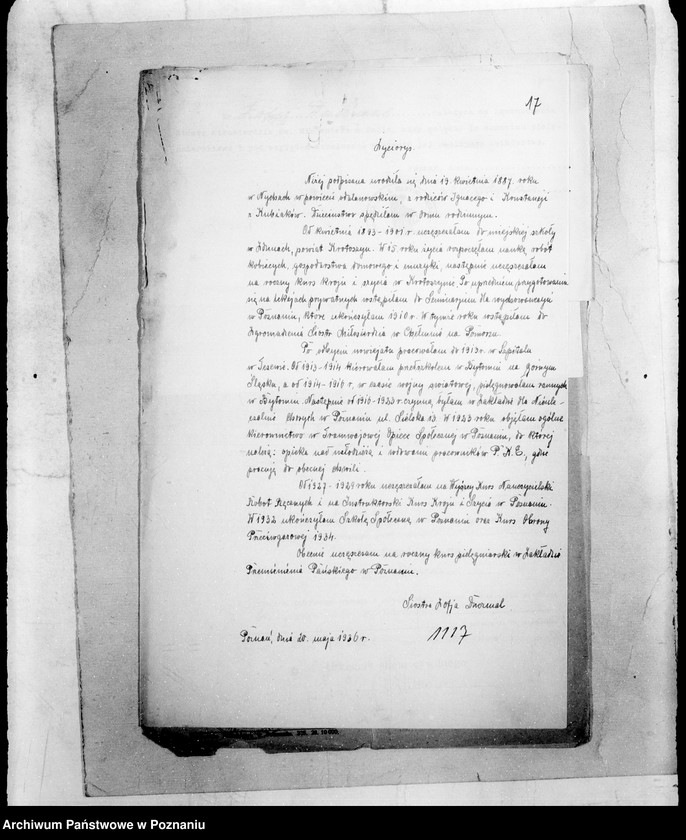 17
Życiorys.
Niżej podpisana urodziła się dnia 19. kwietnia 1887. roku
w Nychach w powiecie odolanowskim, z rodziców Ignacego i Konstancji
z Kubiaków. Dzieciństwo spędziłam w domu rodzinnym.
Od kwietnia 1893-1901 r. uczęszczałam do miejskiej szkoły
w Zdunach, powiat Krotoszyn. W 15. roku życia rozpoczęłam naukę robót
kobiecych, gospodarstwa domowego i muzyki, następnie uczęszczałam
na roczny kurs kroju i szycia w Krotoszynie. Po uprzedniem przygotowaniu
się na lekcjach prywatnych wstąpiłam do Seminarjum dla wychowawczyń
w Poznaniu, które ukończyłam 1910 r. W tymże roku wstąpiłam do
Zgromadzenia Sióstr Miłosierdzia w Chełmnie na Pomorzu.
Po odbyciu nowicjatu pracowałam do 1913 r. w Szpitalu
w Tczewie. Od 1913-1914 kierowałam przedszkolem w Bytomiu na Górnym
Śląsku, a od 1914-1916 r. w czasie wojny światowej, pielęgnowałam rannych
w Bytomiu. Następnie od 1916-1923 r. czynną byłam w Zakładzie dla Nieule-
czalnie Chorych w Poznaniu ul. Sielska 13. W 1923 roku objęłam ogólne
kierownictwo w Tramwajowej Opiece Społecznej w Poznaniu, do której
należą: opieka nad młodzieżą i wdowami pracowników P. K. E., gdzie
pracuję do obecnej chwili.
Od 1927-1929 roku uczęszczałam na Wyższy Kurs Nauczycielski
Robót Ręcznych i na Instruktorski Kurs Kroju i Szycia w Poznaniu.
W 1932 ukończyłam Szkołę Społeczną w Poznaniu oraz Kurs Obrony
Przeciwgazowej 1934.
Obecnie uczęszczam na roczny kurs pielęgniarski w Zakładzie
Przemienienia Pańskiego w Poznaniu.
Siostra Zofja
Poznań, dnia 20. maja 1936 r.
1117
Archiwum Państwowe w Poznaniu